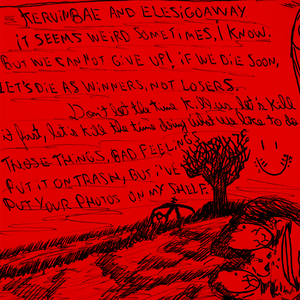 KERVINBAE AND ELESIGOAWAY
IT SEEMS WEIRD SOMETIMES, I KNOW.
BUT WE CAN NOT GIVE UP! IF WE DIE SOON,
LET'S DIE AS WINNERS, NOT LOSERS.
Don't let the time kill us, let's kill
it first, let's kill the time doing what we like to do
THOSE THINGS, BAD FEELINGS
PUT IT ON TRASH, BUT I'VE
PUT YOUR PHOTOS ON MY SHELF.